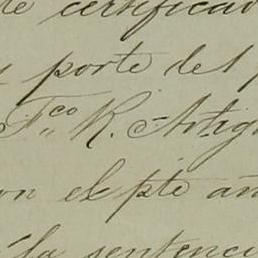 de certificad
porte del
Fco R. Artig
on el pte an
la sentenci